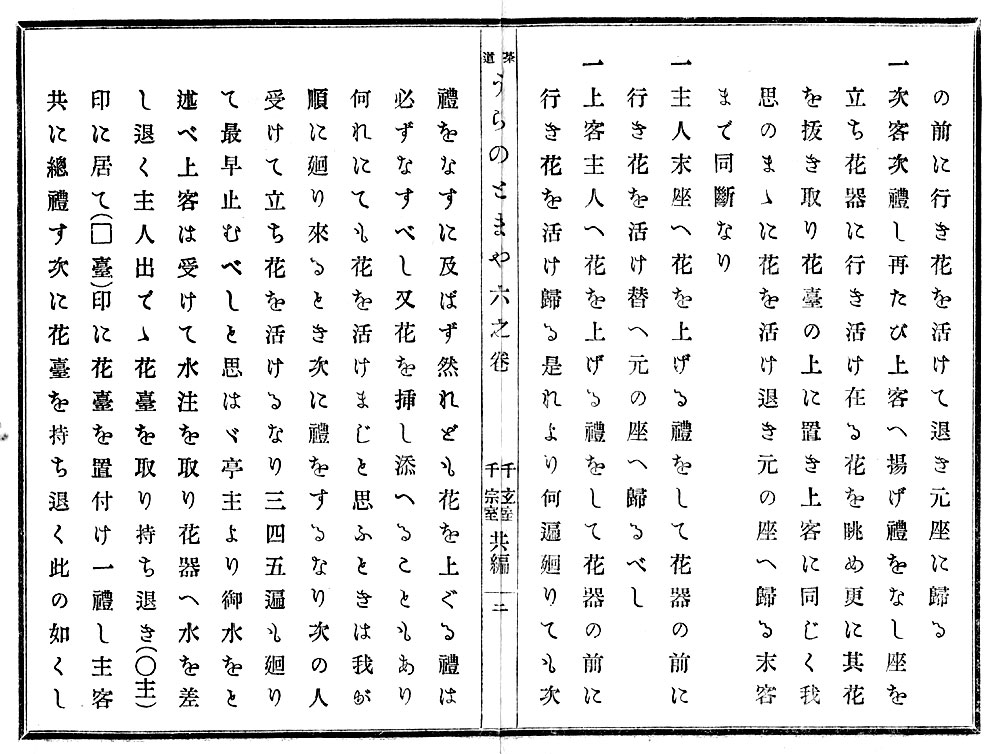 の前に行き花を活けて退き元座に歸る
一次客次禮し再たび上客へ揚げ禮をなし座を
立ち花器に行き活け在る花を眺め更に其花
を抜き取り花臺の上に置き上客に同じく我
思のまゝに花を活け退き元の座へ歸る末客
まで同斷なり
一主人末座へ花を上げる禮をして花器の前に
行き花を活け替へ元の座へ歸るべし
一上客主人へ花を上げる禮をして花器の前に
行き花を活け歸る是れより何遍廻りても次
茶道うらのとまや六之卷
千玄室
千宗室
共編
二
禮をなすに及ばず然れども花を上ぐる禮は
必ずなすべし又花を挿し添へることもあり
何れにても花を活けまじと思ふときは我が
順に廻り來るとき次に禮をするなり次の人
受けて立ち花を活けるなり三四五遍も廻り
て最早止むべしと思はゞ亭主より御水をと
述べ上客は受けて水注を取り花器へ水を差
し退く主人出でゝ花臺を取り持ち退き(〇主)
印に居て(□臺)印に花臺を置付け一禮し主客
共に總禮す次に花臺を持ち退く此の如くし